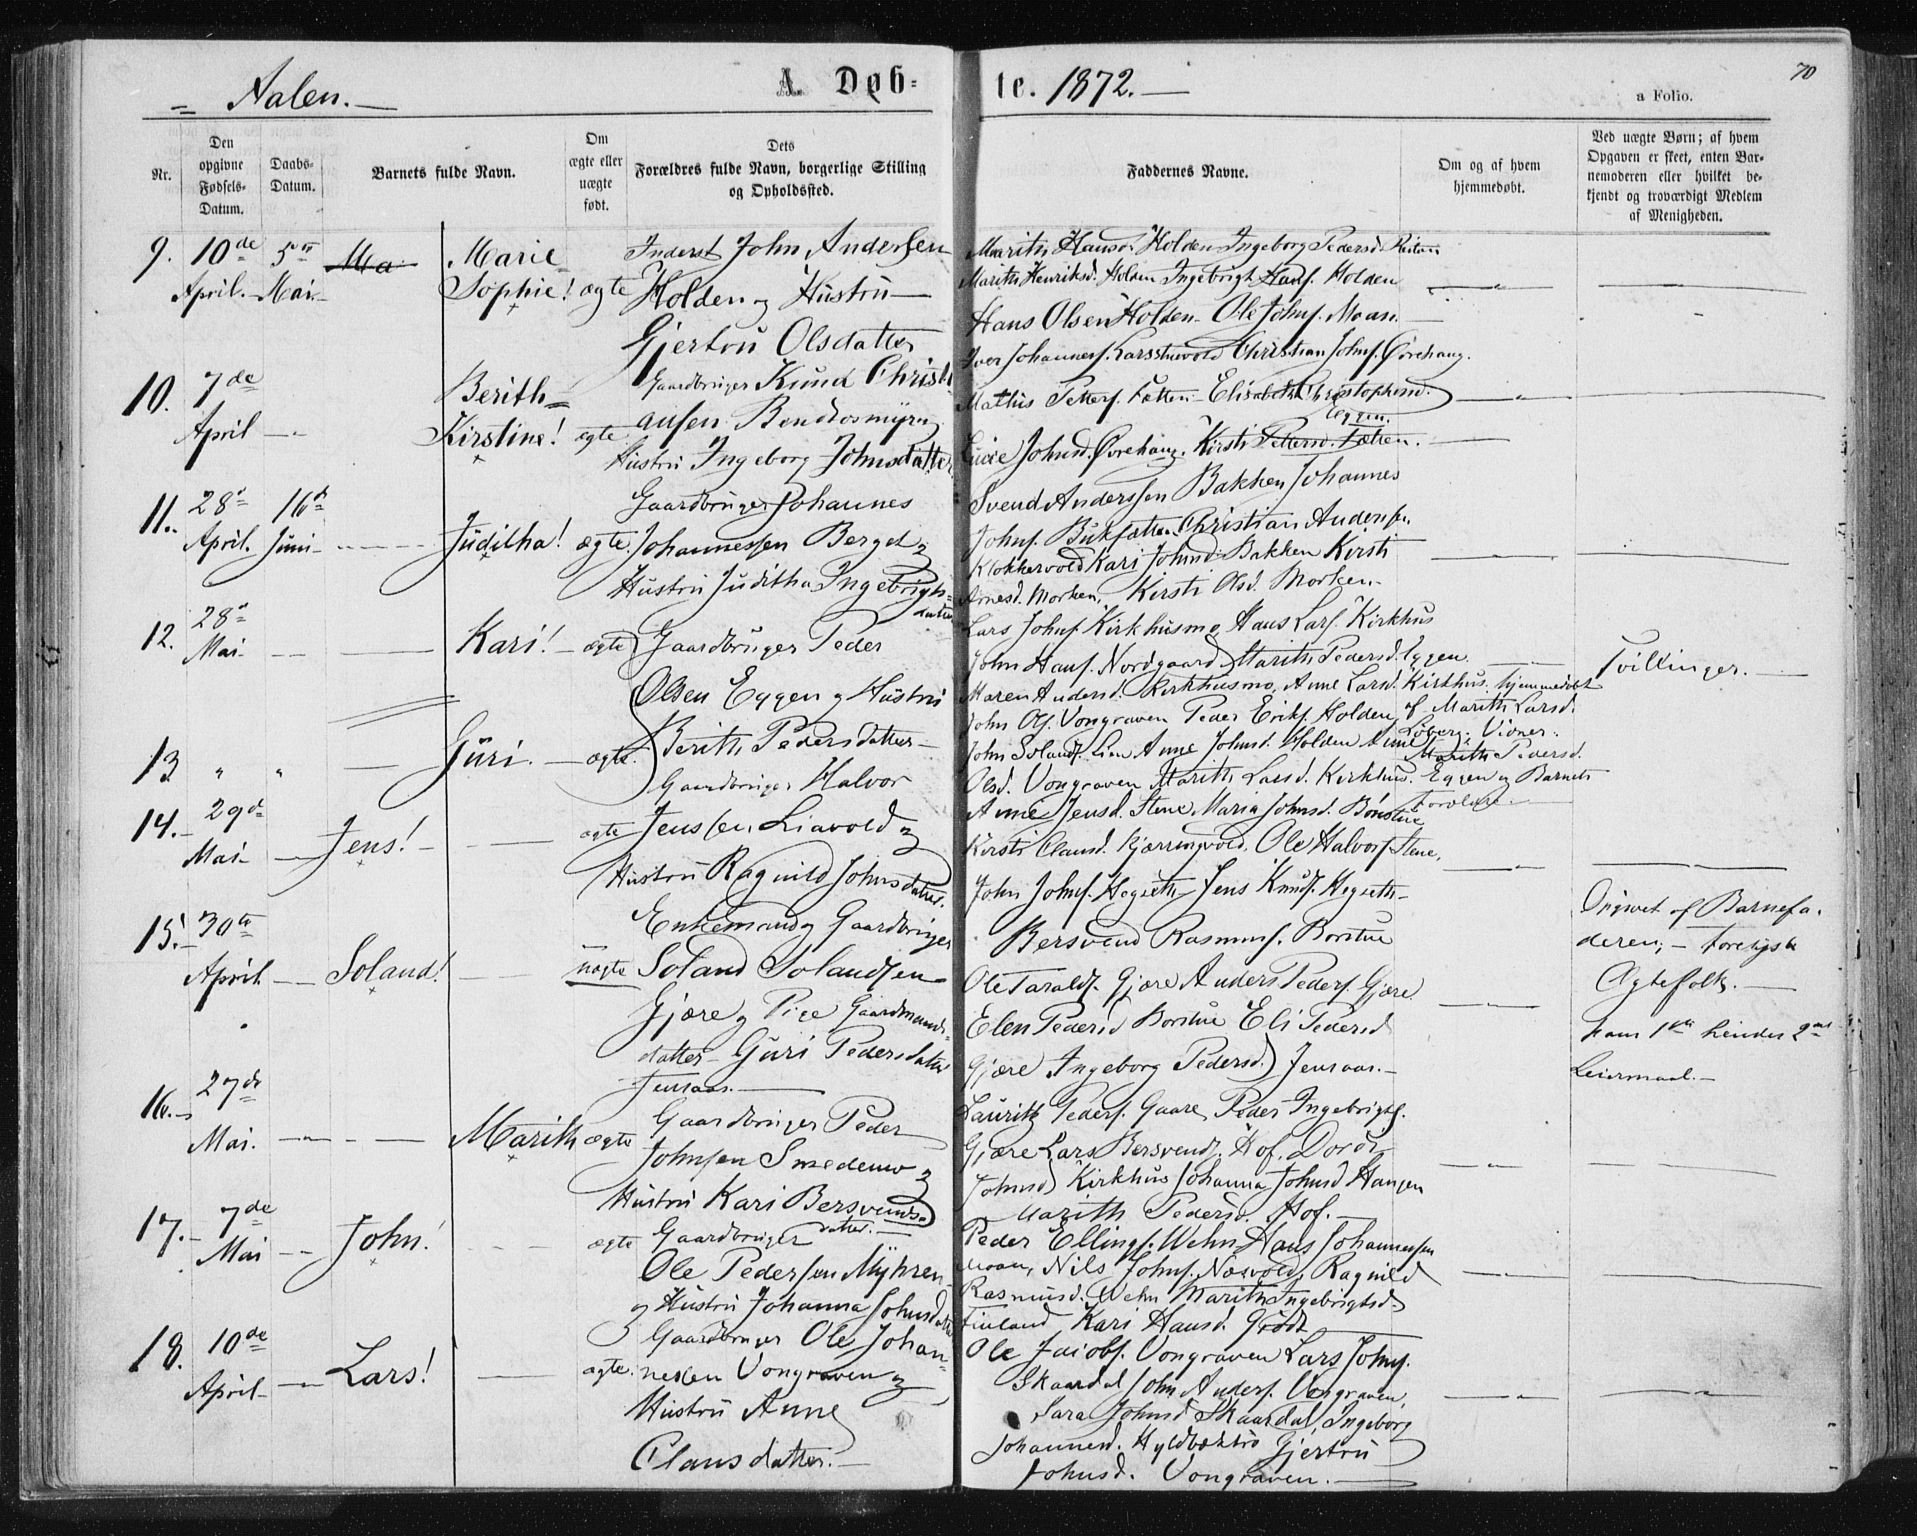 Aalen.
A. Døb-
te. 1872.
70
a Folio.
Nr.
Den opgivne Fødsels-Datum.
Daabs-Datum.
Barnets fulde Navn.
Om ægte eller uægte født.
Dets Forældres fulde Navn, borgerlige Stilling og Opholdssted.
Faddernes Navne.
Om og af hvem hjemmedøbt.
Ved uægte Børn; af hvem Opgaven er skeet, enten Barnemoderen eller hvilket bekjendt og troværdigt Medlem af Menigheden.
9. 10de April. 5te Mai
Marie Sophie! ægte
Inderst John Andersen
Holden og Hustru
Gjertru Olsdatter
Marith Hansd. Holden Ingeborg Pedersd. Reitan
Marith Henriksd. Holden Ingebrigt Hans. Holden
Hans Olsen Holden Ole Johns. Moan.
10. 7de April
Berith Kirstine! ægte
Gaardbruger Knud Christi
ansen Bendosmyren
Hustru Ingeborg Johnsdatter
Iver Johannes. Larsstuvold Christian Johns. Ørehaug.
Mathis Petters. Fætten Elisabeth Christophersd.
Eggen.
Lucie Johnsd. Ørehaug. Kirsti Pettersd. Fætten.
11. 28de April. 16de Juni
Juditha! ægte
Gaardbruger Johannes
Johannessen Berget og
Hustru Juditha Ingebrigts-
datter
Svend Anderssen Bakken Johannes
Johns. Bukfætten Christian Anders.
Klokkervold Kari Johnsd. Bakken Kirsti
Arnesd. Morken. Kirsti Olsd. Morken.
12. 28de Mai
Kari! ægte
Gaardbruger Peder
Olsen Eggen og Hustru
Berith Pedersdatter
Lars Johns. Kirkhusmo Hans Lars. Kirkhus
John Hans. Nordgaard Marith Pedersd. Eggen.
Maren Andersd. Kirkhusmo, Anne Larsd. Kirkhus.
hjemmedøbt
af Marith Larsd.
Loberg. Vidner:
Marith Pedersd.
Eggen og Barnets
Forældre
Tvillinger.
13 " "
Guri. ægte.
John Ols. Vongraven Peder Eriks. Holden
John Solands. Lien Anne Johnsd. Holden Anne
Olsd. Vongraven Marith Larsd. Kirkhus.
14. 29de Mai
Jens! ægte
Gaardbruger Halvor
Jenssen Liavold og
Hustru Ragnild Johnsdatter.
Anne Jensd. Stene Maria Johnsd. Borstue
Kirsti Clausd. Kjærringvold. Ole Halvors. Stene,
John Johns. Hegseth Jens Knuds. Hegseth
15. 30te April
Soland! uægte
Enkemand og Gaardbruger
Soland Solandsen
Gjære og Pige Gaardmands-
datter Guri Pedersdatter
Jensaas.
Bersvend Rasmuss. Borstue
Ole Taralds. Gjære Anders Peders. Gjære
Elen Pedersd Borstue Eli Pedersd
Gjære Ingeborg Pedersd. Jensaas.
Opgivet af Barnefa-
deren;
Ægtefolk.
hans 1ste hendes 2det
Leiermaal.
16. 27de Mai.
Marith ægte
Gaardbruger Peder
Johnsen Smedemo og
Hustru Kari Bersvends-
datter.
Lauritz Peders. Gaare Peder Ingebrigts.
Gjære Lars Bersvends. Hof. Dordi
Johnsd Kirkhus Johanna Johnsd Haugen
Marith Pedersd. Hof.
17. 7de Mai
John! ægte
Gaardbruger
Ole Pedersen Myhren
og Hustru Johanna Johnsdatter
Peder Ellings. Wehn Hans Johannessen
Moan, Nils Johns. Næsvold, Ragnild
Rasmusd. Wehn Marith Ingebrigtsd.
Finland Kari Hansd. Grødt
18. 10de April
Lars! ægte.
Gaardbruger Ole Johan-
nessen Vongraven og
Hustru Anne
Clausdatter.
Ole Jacobs. Vongraven Lars Johns.
Skaardal John Anders. Vongraven,
Sara Johnsd Skaardal Ingeborg
Johannesd. Hyldbækbro Gjertru
Johnsd. Vongraven.